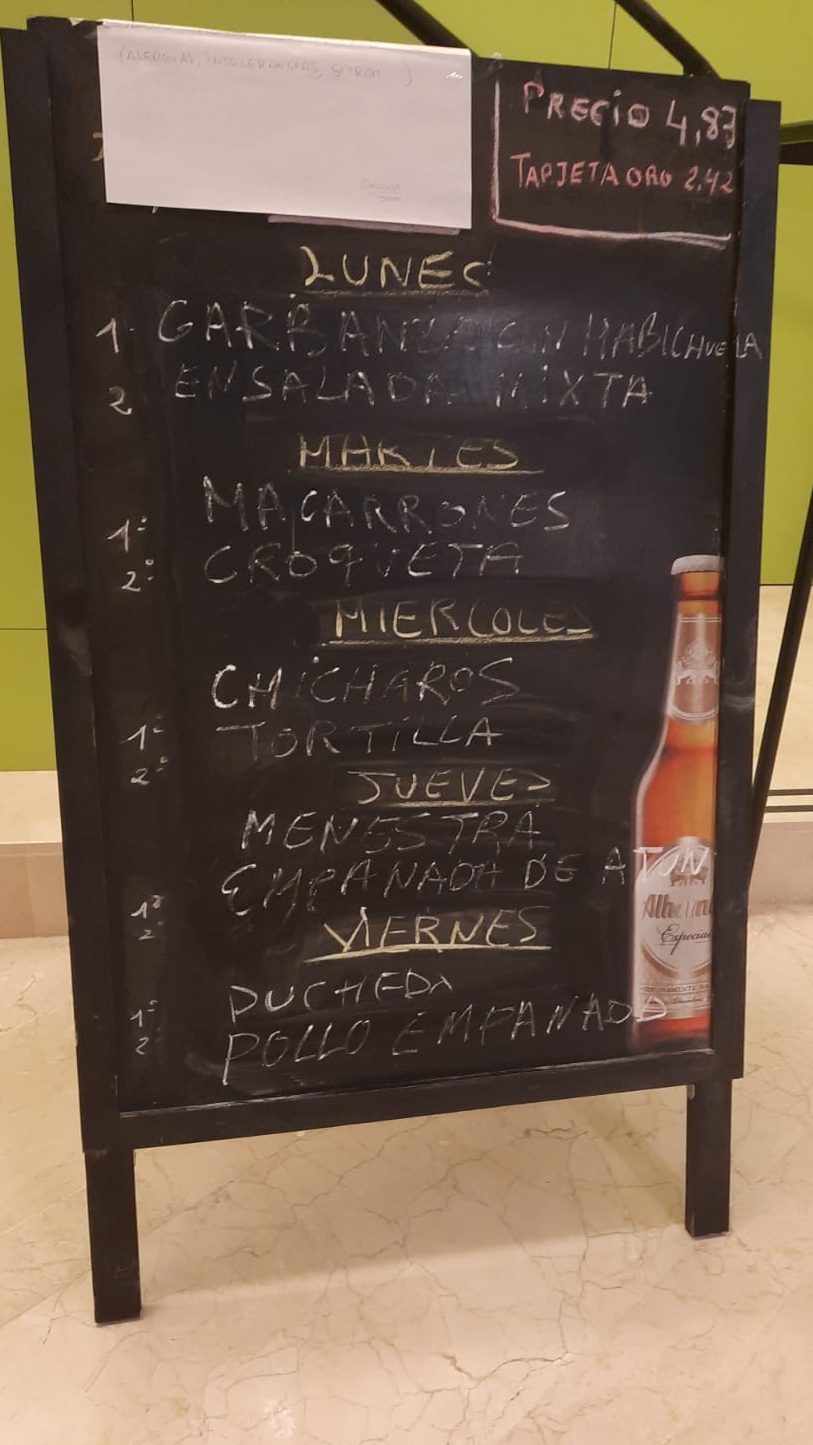 (ALERGIAS, INTOLERANCIAS, )
PRECIO 4,87
TARJETA ORO 2,42
LUNES
1- GARBANZO CON HABICHUELA
2 ENSALADA MIXTA
MARTES
1º MACARRONES
2º CROQUETA
MIERCOLES
1º CHICHAROS
2º TORTILLA
JUEVES
1º MENESTRA
2º EMPANADA DE ATUN
VIERNES
1º PUCHERO
2 POLLO EMPANADO
Alhambra
Especial